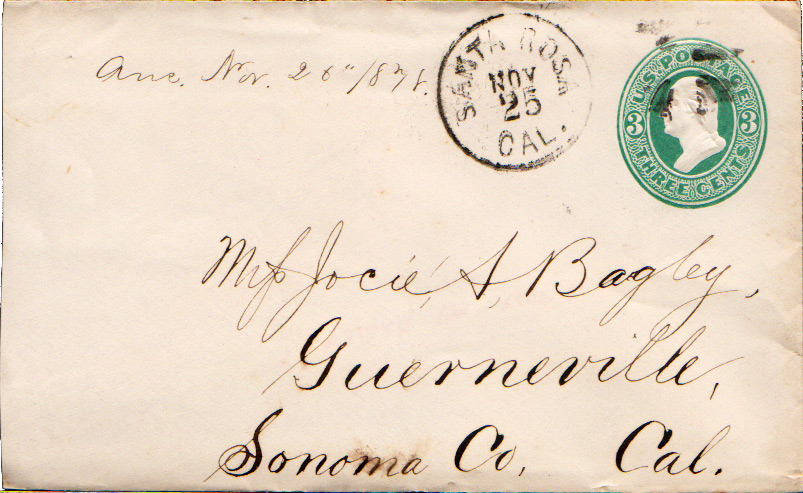 Ans. Nov. 26" 1878.
SANTA ROSA
NOV
25
CAL.
U.S. POSTAGE
3 3
THREE CENTS
Miss Jocie, A, Bagley,
Guerneville,
Sonoma Co, Cal.